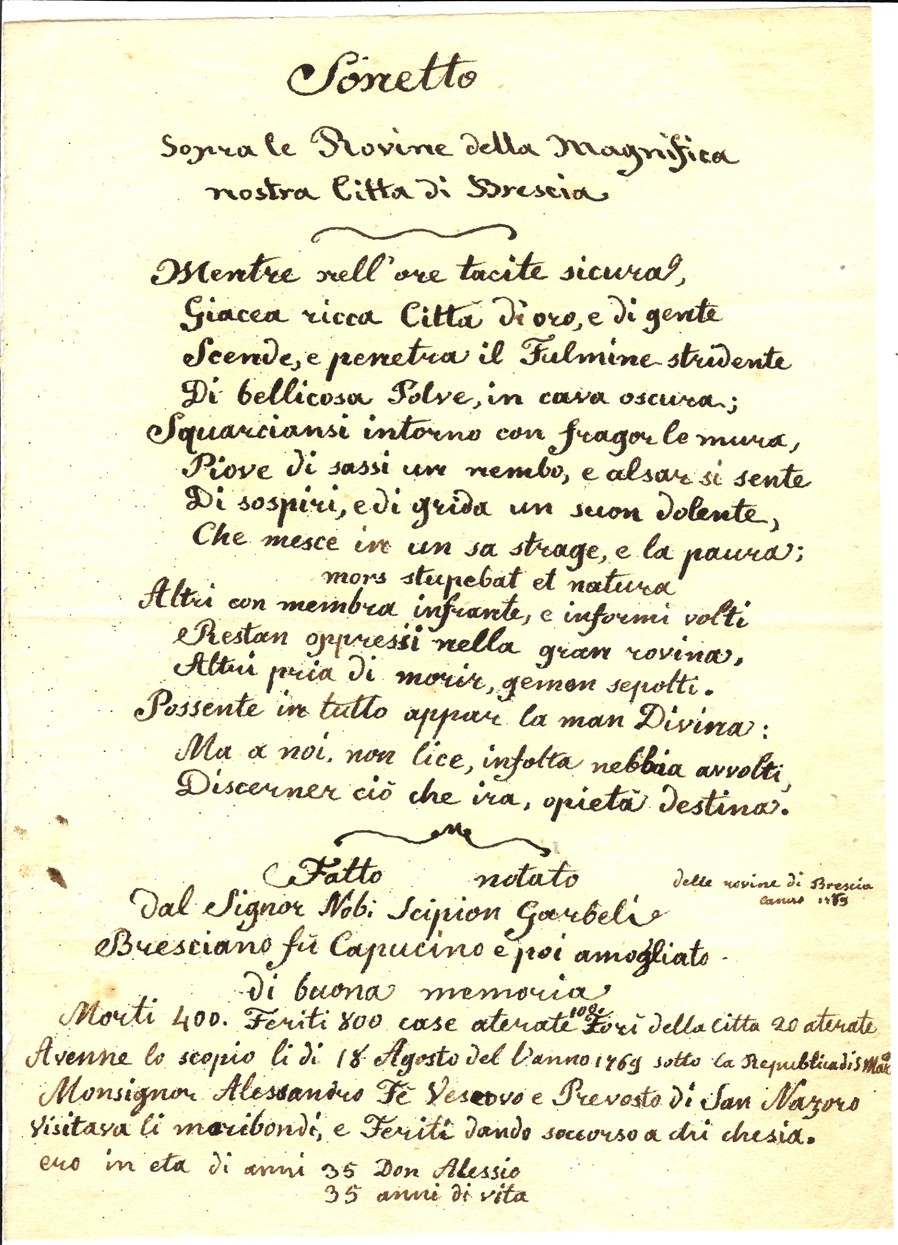 Sonetto
Sopra le Rovine della Magnifica
nostra Citta di Brescia
Mentre nell'ore tacite sicura,
Giacea ricca Città di oro, e di gente
Scende, e penetra il Fulmine stridente
Di bellicosa Polve, in cava oscura;
Squarciansi intorno con fragor le mura,
Piove di sassi un nembo, e alsar si sente
Di sospiri, e di grida un suon dolente,
Che mesce in un sa strage, e la paura;
mors stupebat et natura
Altri con membra infrante, e informi volti
Restan oppressi nella gran rovina,
Altri pria di morir, gemon sepolti.
Possente in tutto appar la man Divina:
Ma a noi, non lice, infolta nebbia avvolti,
Discerner ciò che ira, o pietà destina.
Fatto notato
delle rovine di Brescia
1769
dal Signor Nobi Scipion Garbeli
Bresciano fù Capucino e poi amogliato
di buona memoria
Morti 400. Feriti 800 case aterate Fori della Citta 20 aterate
Avenne lo scopio li di 18 Agosto del l'anno 1769 sotto la Republica di S Mar
Monsignor Alessandro Fè Vescovo e Prevosto di San Nazoro
Visitava li moribondi, e Feriti dando soccorso a chi chesia.
ero in eta di anni 35 Don Alessio
35 anni di vita